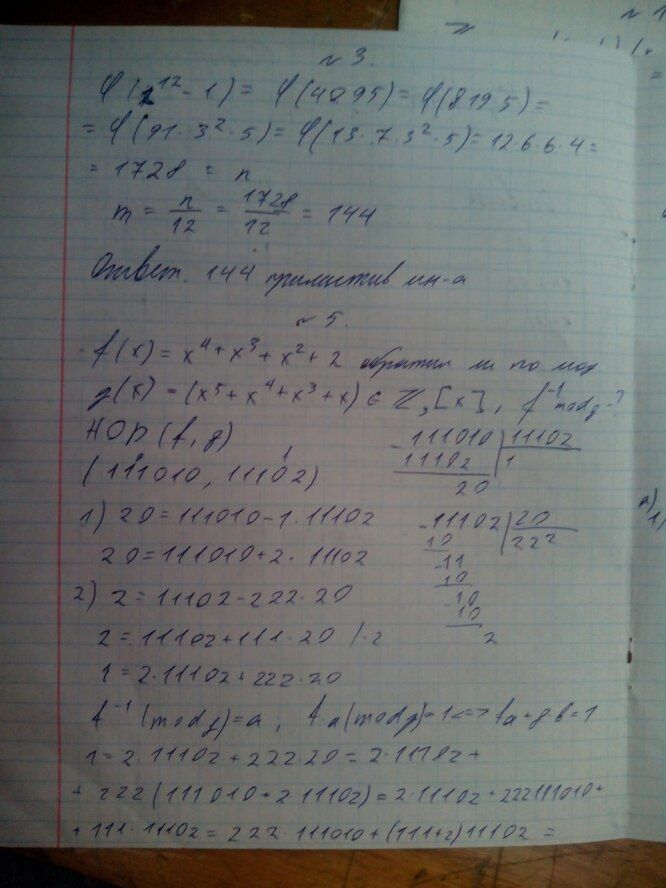 № 3.
φ(2¹² - 1) = φ(4095) = φ(819·5) =
= φ(91·3²·5) = φ(13·7·3²·5) = 12·6·6·4 =
= 1728 = n
m = n/12 = 1728/12 = 144
Ответ. 144 примитив мн-а
№ 5.
f(x) = x⁴ + x³ + x² + 2 обратим ли по мод
g(x) = (x⁵ + x⁴ + x³ + x) ∈ ℤ₃[x], f⁻¹ mod g - ?
НОД (f, g)
(111010, 11102)
-111010 | 11102
11102 | 1
20
1) 20 = 111010 - 1·11102
20 = 111010 + 2·11102
-11102 | 20
10 | 222
-11
10
-10
10
2
2) 2 = 11102 - 222·20
2 = 11102 + 111·20 /·2
1 = 2·11102 + 222·20
f⁻¹ (mod g) = a; f·a (mod g) = 1 <=> fa + g·b = 1
1 = 2·11102 + 222·20 = 2·11102 +
+ 222(111010 + 2·11102) = 2·11102 + 222·111010 +
+ 111·11102 = 222·111010 + (111+2)11102 =